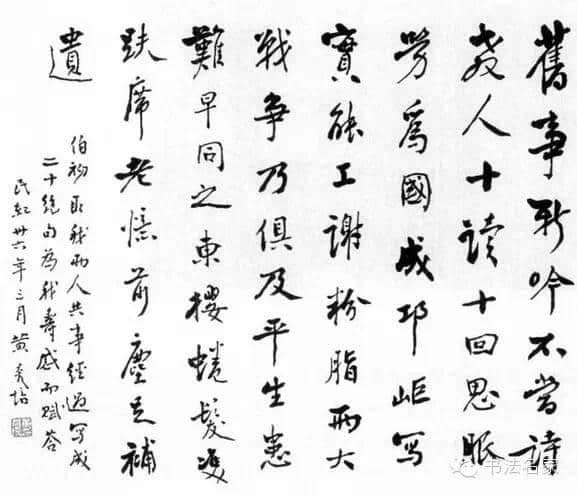 舊事新吟不當詩
教人十讀十回思服
勞爲國成邛岠寫
實能工謝粉脂兩大
戰爭乃俱及平生患
難早同之東樓蜷髮雙
趺席老憶前塵足補
遺
伯初取我兩人共事經過寫成
二十絕句為我壽感而賦答
民紀卅六年三月黃炎培
书法名家